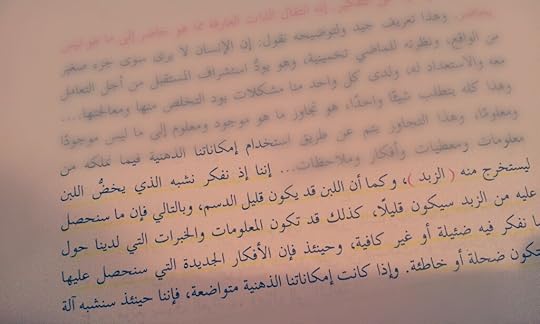 بحاضر. وهذا تعريف جيد ولتوضيحه نقول: إن الإنسان لا يرى سوى جزء صغير
من الواقع، ونظرته للماضي تخمينية، وهو يودُّ استشراف المستقبل من أجل التعامل
معه والاستعداد له، ولدى كل واحد منا مشكلات يود التخلص منها ومعالجتها....
وهذا كله يتطلب شيئًا واحدًا، هو تجاوز ما هو موجود ومعلوم إلى ما ليس موجودًا
ومعلومًا، وهذا التجاوز يتم عن طريق استخدام إمكاناتنا الذهنية فيما نملكه من
معلومات ومعطيات وأفكار وملاحظات... إننا إذ نفكر نشبه الذي يخضُّ اللبن
ليستخرج منه (الزبد)، وكما أن اللبن قد يكون قليل الدسم، وبالتالي فإن ما سنحصل
عليه من الزبد سيكون قليلًا، كذلك قد تكون المعلومات والخبرات التي لدينا حول
ما نفكر فيه ضئيلة أو غير كافية، وحينئذ فإن الأفكار الجديدة التي سنحصل عليها
تكون ضحلة أو خاطئة. وإذا كانت إمكاناتنا الذهنية متواضعة، فإننا حينئذ سنشبه آلة